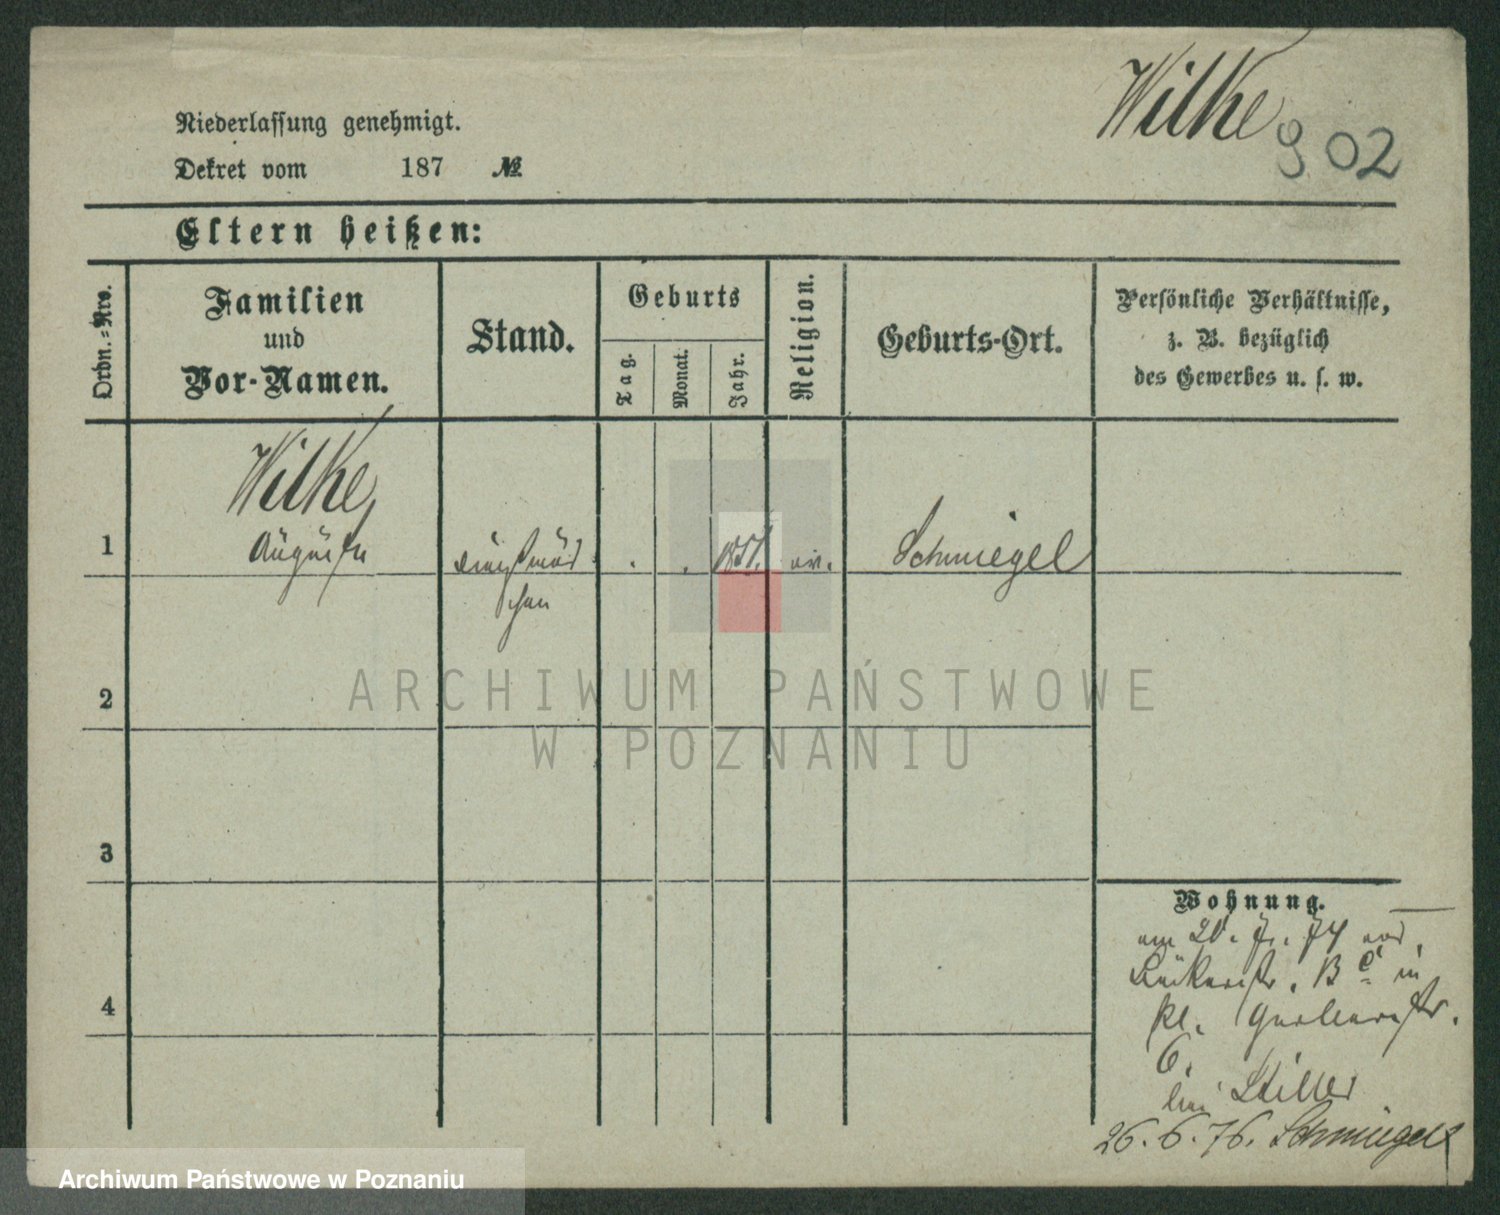 Wilke
902
Niederlassung genehmigt.
Dekret vom 187 №
Eltern heißen:
Ordn.-Nro.
Familien
und
Vor-Namen.
Stand.
Geburts
Tag.
Monat.
Jahr.
Religion.
Geburts-Ort.
Persönliche Verhältnisse,
z. B. bezüglich
des Gewerbes u. s. w.
1
Wilke,
Auguste
Dienstmäd
chen
Schmiegel
2
3
4
Wohnung.
am 20. 74
in
kl. Gerberstr.
6.
bei Stiller
26.6.76. Schmiegel
ARCHIWUM PAŃSTWOWE
W POZNANIU
Archiwum Państwowe w Poznaniu